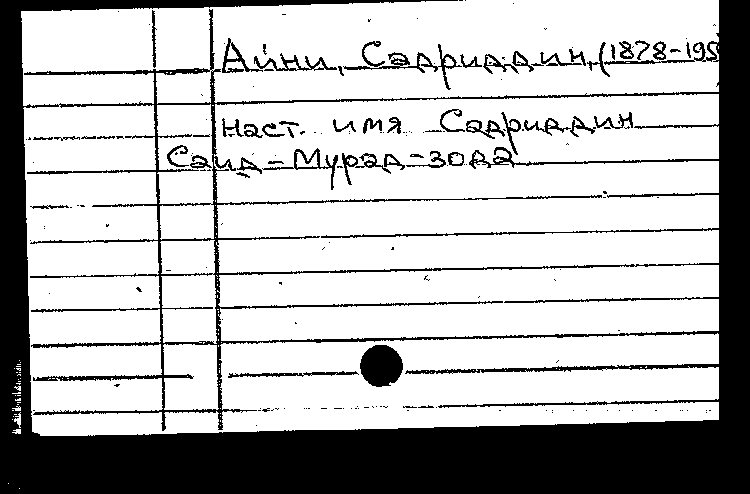 Айни, Садриддин, (1878-195
Наст. имя Садриддин
Саид-Мурад-зода